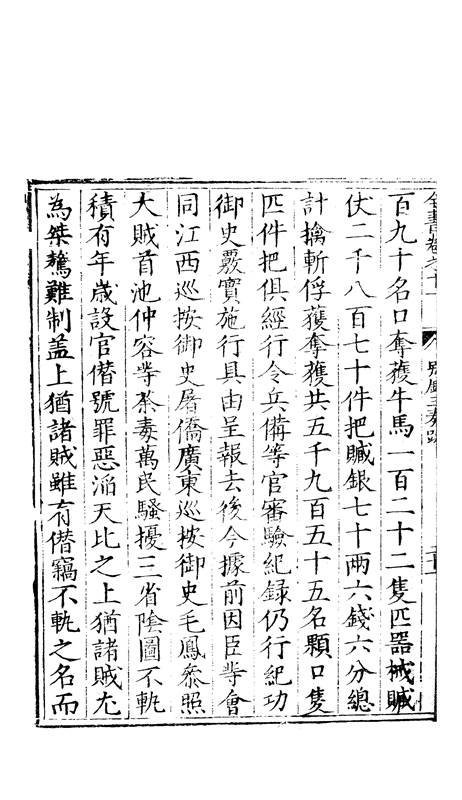 百九十名口奪獲牛馬一百二十二隻匹器械贓
仗二千八百七十件把贓銀七十兩六錢六分總
計擒斬俘獲奪獲共五千九百五十五名顆口隻
匹件把俱經行令兵備等官審驗紀録仍行紀功
御史覈實施行具由呈報去後今據前因臣等會
同江西巡按御史屠僑廣東巡按御史毛鳳叅照
大賊首池仲容等荼毒萬民騷擾三省陰圖不軌
積有年歲設官僣號罪惡滔天比之上猶諸賊尤
為桀驁難制盖上猶諸賊雖有僣竊不軌之名而